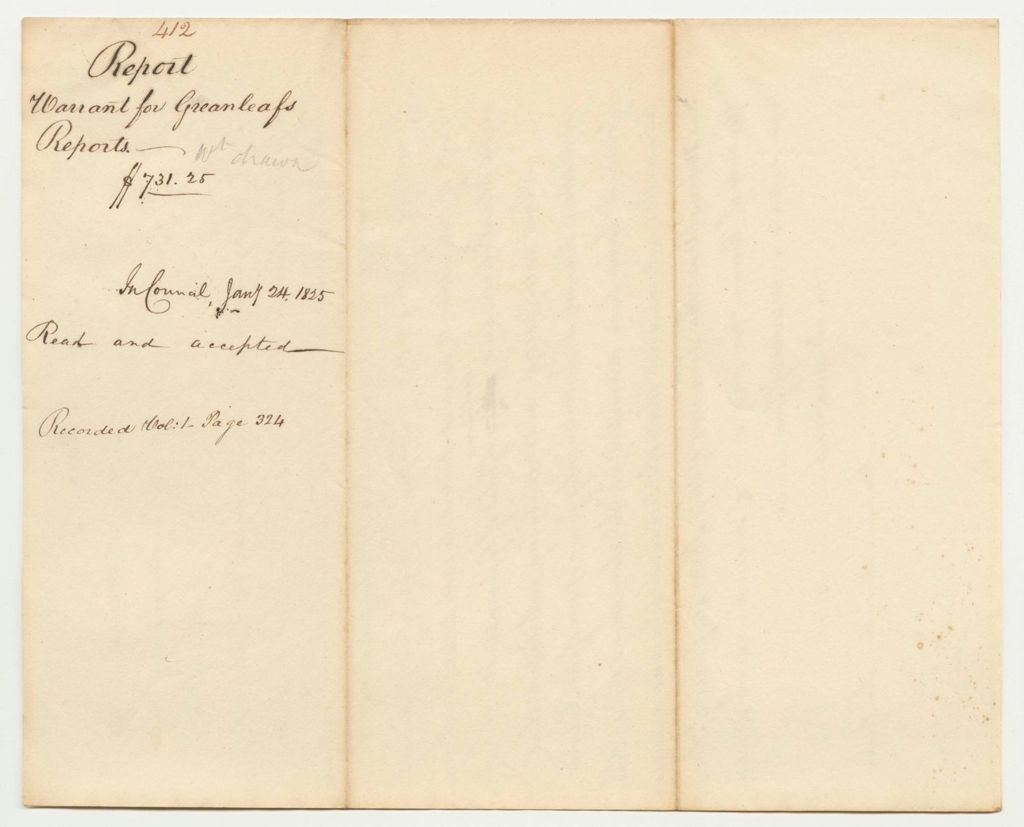 412
Report
Warrant for Greanleafs
Reports. — Wt drawn
$731.25
In Council, Jany 24. 1825
Read and accepted
Recorded Vol: 1 Page 324